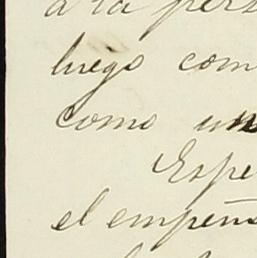 a la pers
luego com
como un
Espe
el empeñ